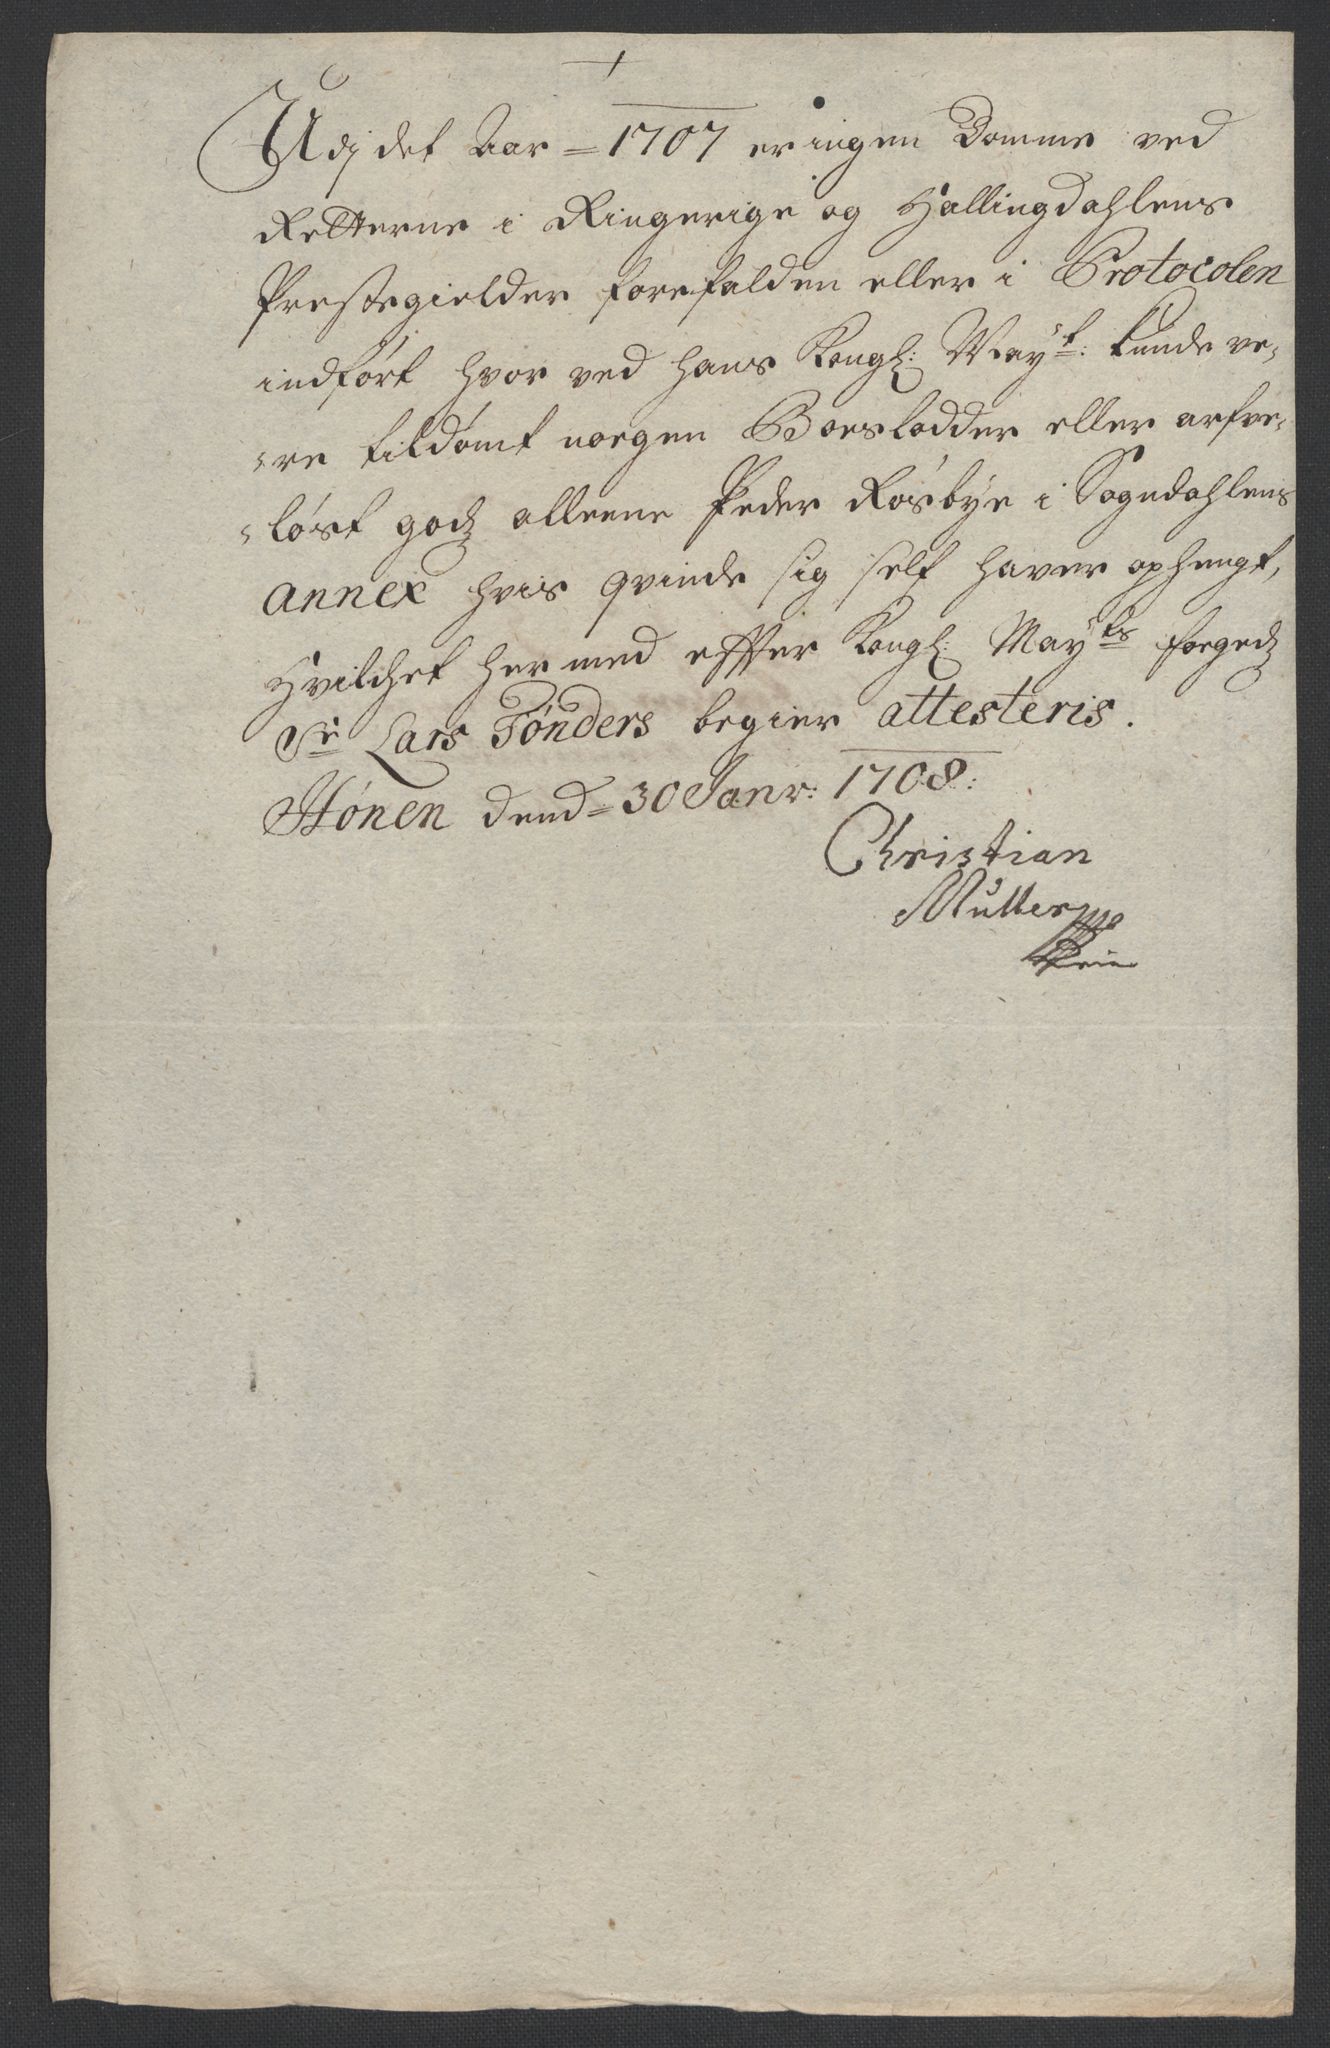 Udj det Aar 1707 er ingen Domme ved
Retterne i Ringerige og Hallingdahlens
Prestegielder forefalden eller i Protocolen
indført hvor ved hans Kongl: Mayt: kunde ve-
-re tildømt noegen Boeslodder eller arfve-
-løst godz alleene Peder Røsbye i Sogndahlens
annex hvis qvinde sig self haver ophengt,
Hvilchet her med effter Kongl: Mayts foegedz
Sr Lars Tønders begier attesteris.
Hønen dend 30 Janr: 1708:
Christian
Muller